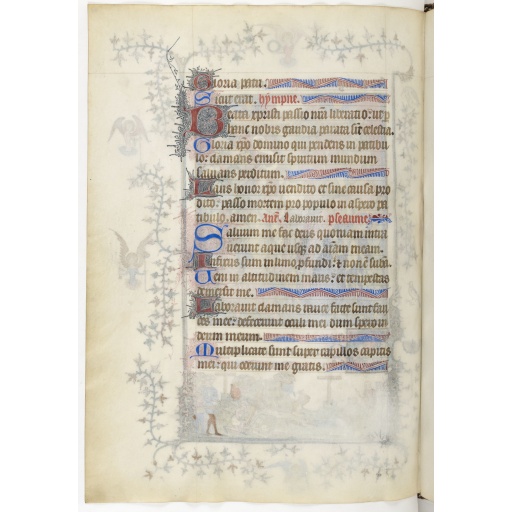 Gloria patri.
Sicut erat. hympne.
Beata xpristi passio nrã liberatio: ut p
hanc nobis gaudia parata sit celestia.
Gloria xpo domino qui pendens in patibu
lo: clamans emisit spiritum mundum
saluans perditum.
Laus hono: xpo vendito et sine causa pro
dito: passo mortem pro populo in aspero pa
tibulo, amen. Añ. Laboraui. pseaume
Saluum me fac deus quoniam intra
uerunt aque usq; ad aiãm meam.
Infixus sum in limo pfundi: et non e suba.
Ueni in altitudinem maris: et tempestas
demersit me.
Laboraui clamans rauce facte sunt fau
ces mee: defecerunt oculi mei dum spero in
deum meum.
Multiplicati sunt super capillos capitis
mei: qui oderunt me gratis.